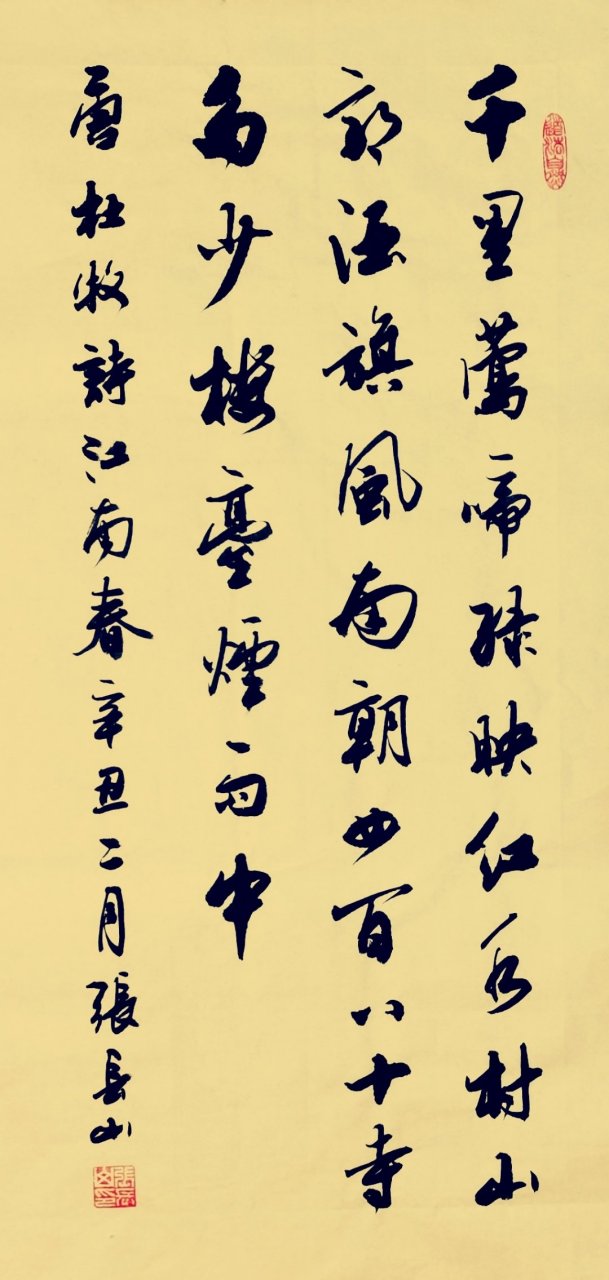 道法自然
千里鶯啼綠映紅水村山
郭酒旗風南朝四百八十寺
多少樓臺煙雨中
書杜牧詩江南春辛丑二月張長山
張長山印